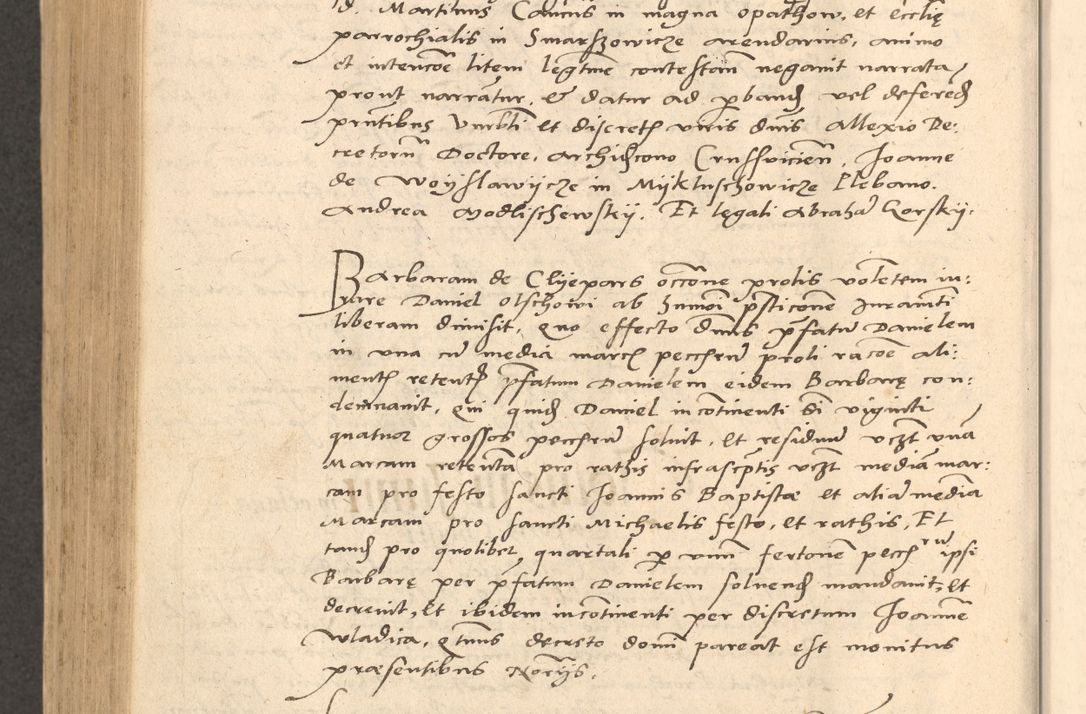 d. Martinus Caucus in magna opathow, et ecclię
parrochialis in Smarszowicze arendarius, animo
et intencoe litem legtme contestan negavit narrata
prout narrantur. & datur ad pband vel defered
pntibus Vnrbli et discreti viris dnis Allexio De:
cretorum Doctore, Archidcono Crussvicien, Joanne
de Woyslawijcze in Mijkluschowicze Plebano.
Andrea Modlischewskij. Et legali Abraha Gorskij.
Barbaram de Clijepars occone prolis voletem in:
jure Daniel Olschowi ab Summi psticone Juramti
liberam dimisit, Quo effecto dnus pfatu Danielem
in una cu media marca pecchru proli racoe ali:
mentt retentt pfatum Danielem eidem Barbarę con:
demnavit, Qui quid Daniel incotinenti di viginti
quatuor grossos pecchru solvit, et residuu vczt una
Marcam retenta pro rathis infrascptis vczt media mar:
cam pro festo sancti Joannis Baptistæ et alia media
Marcam pro sancti Michaelis festo, et rathis, Et
tand pro quolibet quartali p unu fertone pecchru ipsi
Barbarę per pfatum Danielem solvend mandavit, et
decrevit, et ibidem incotinenti per discretum Joanne
Wladica, Qtmus decreto domi pareat est monitus
præsentibus Norijs.